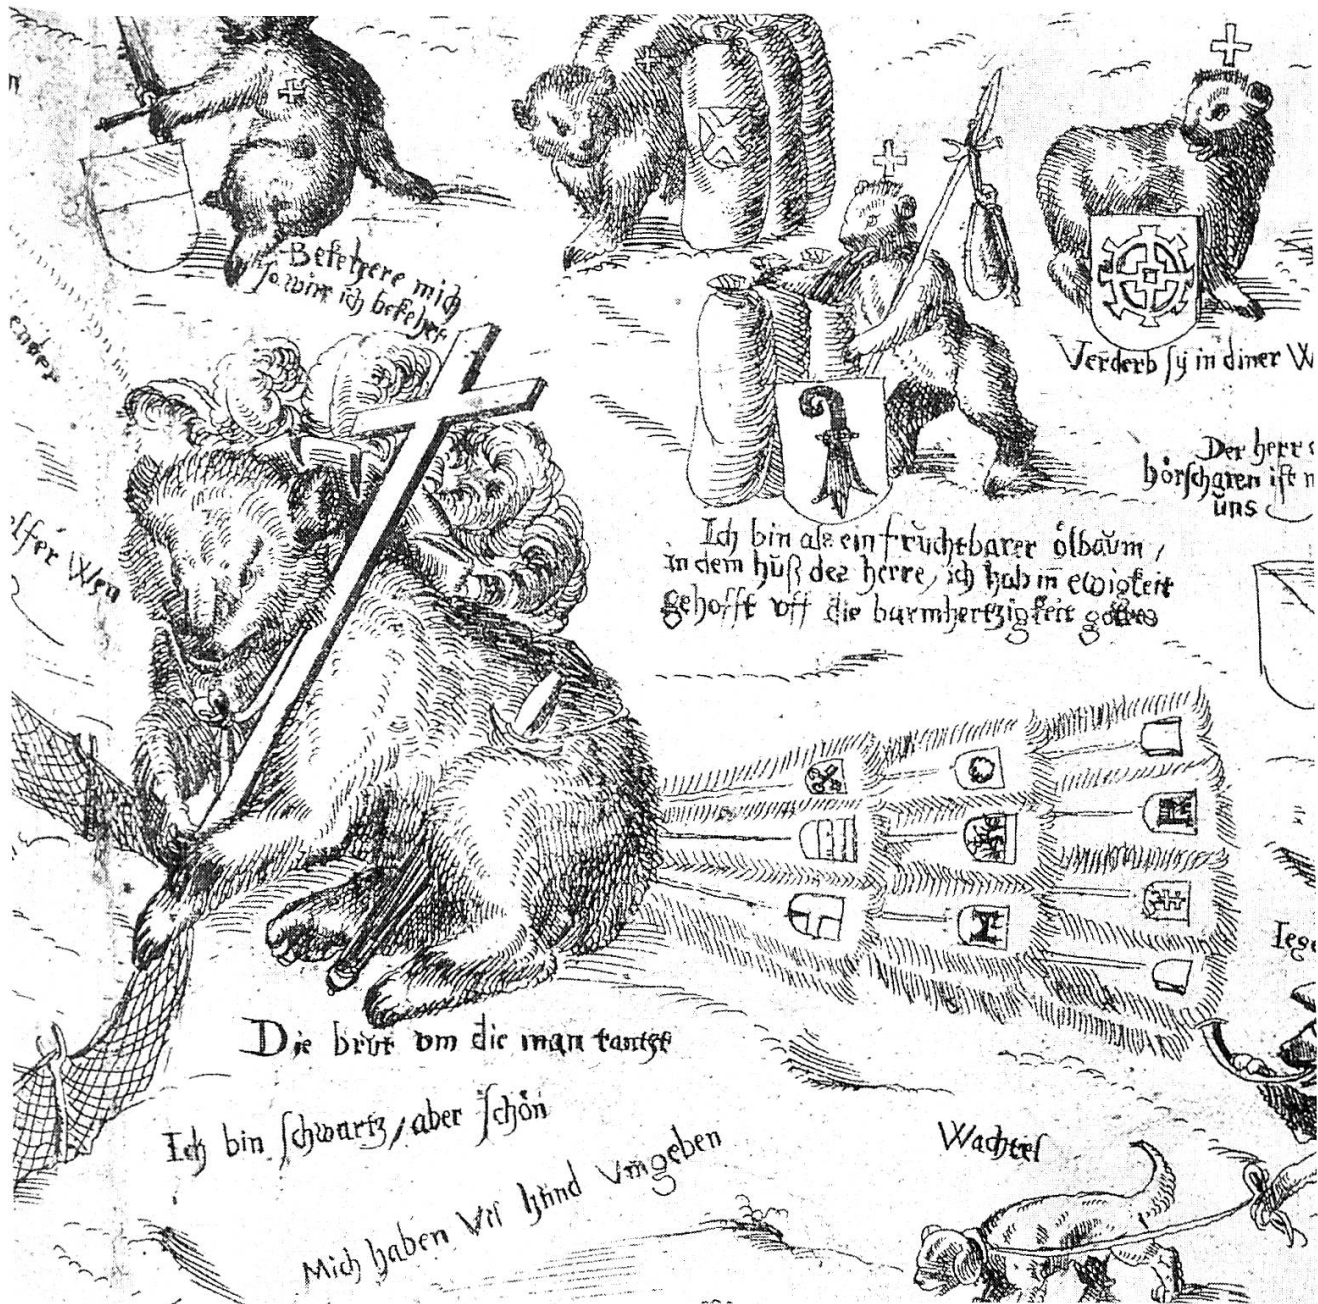 Bekehere mich
so wirt ich bekehert
Verderb sy in diner
Der herr
hörscharen ist
uns
Ich bin als ein fruchtbarer ölbaum /
in dem huß des herre, ich hab in ewigkeit
gehofft uff die barmhertzigkeit gottes
Die brut um die man tantzt
Ich bin schwartz / aber schön
Mich haben vil hünd umgeben
Wachtel